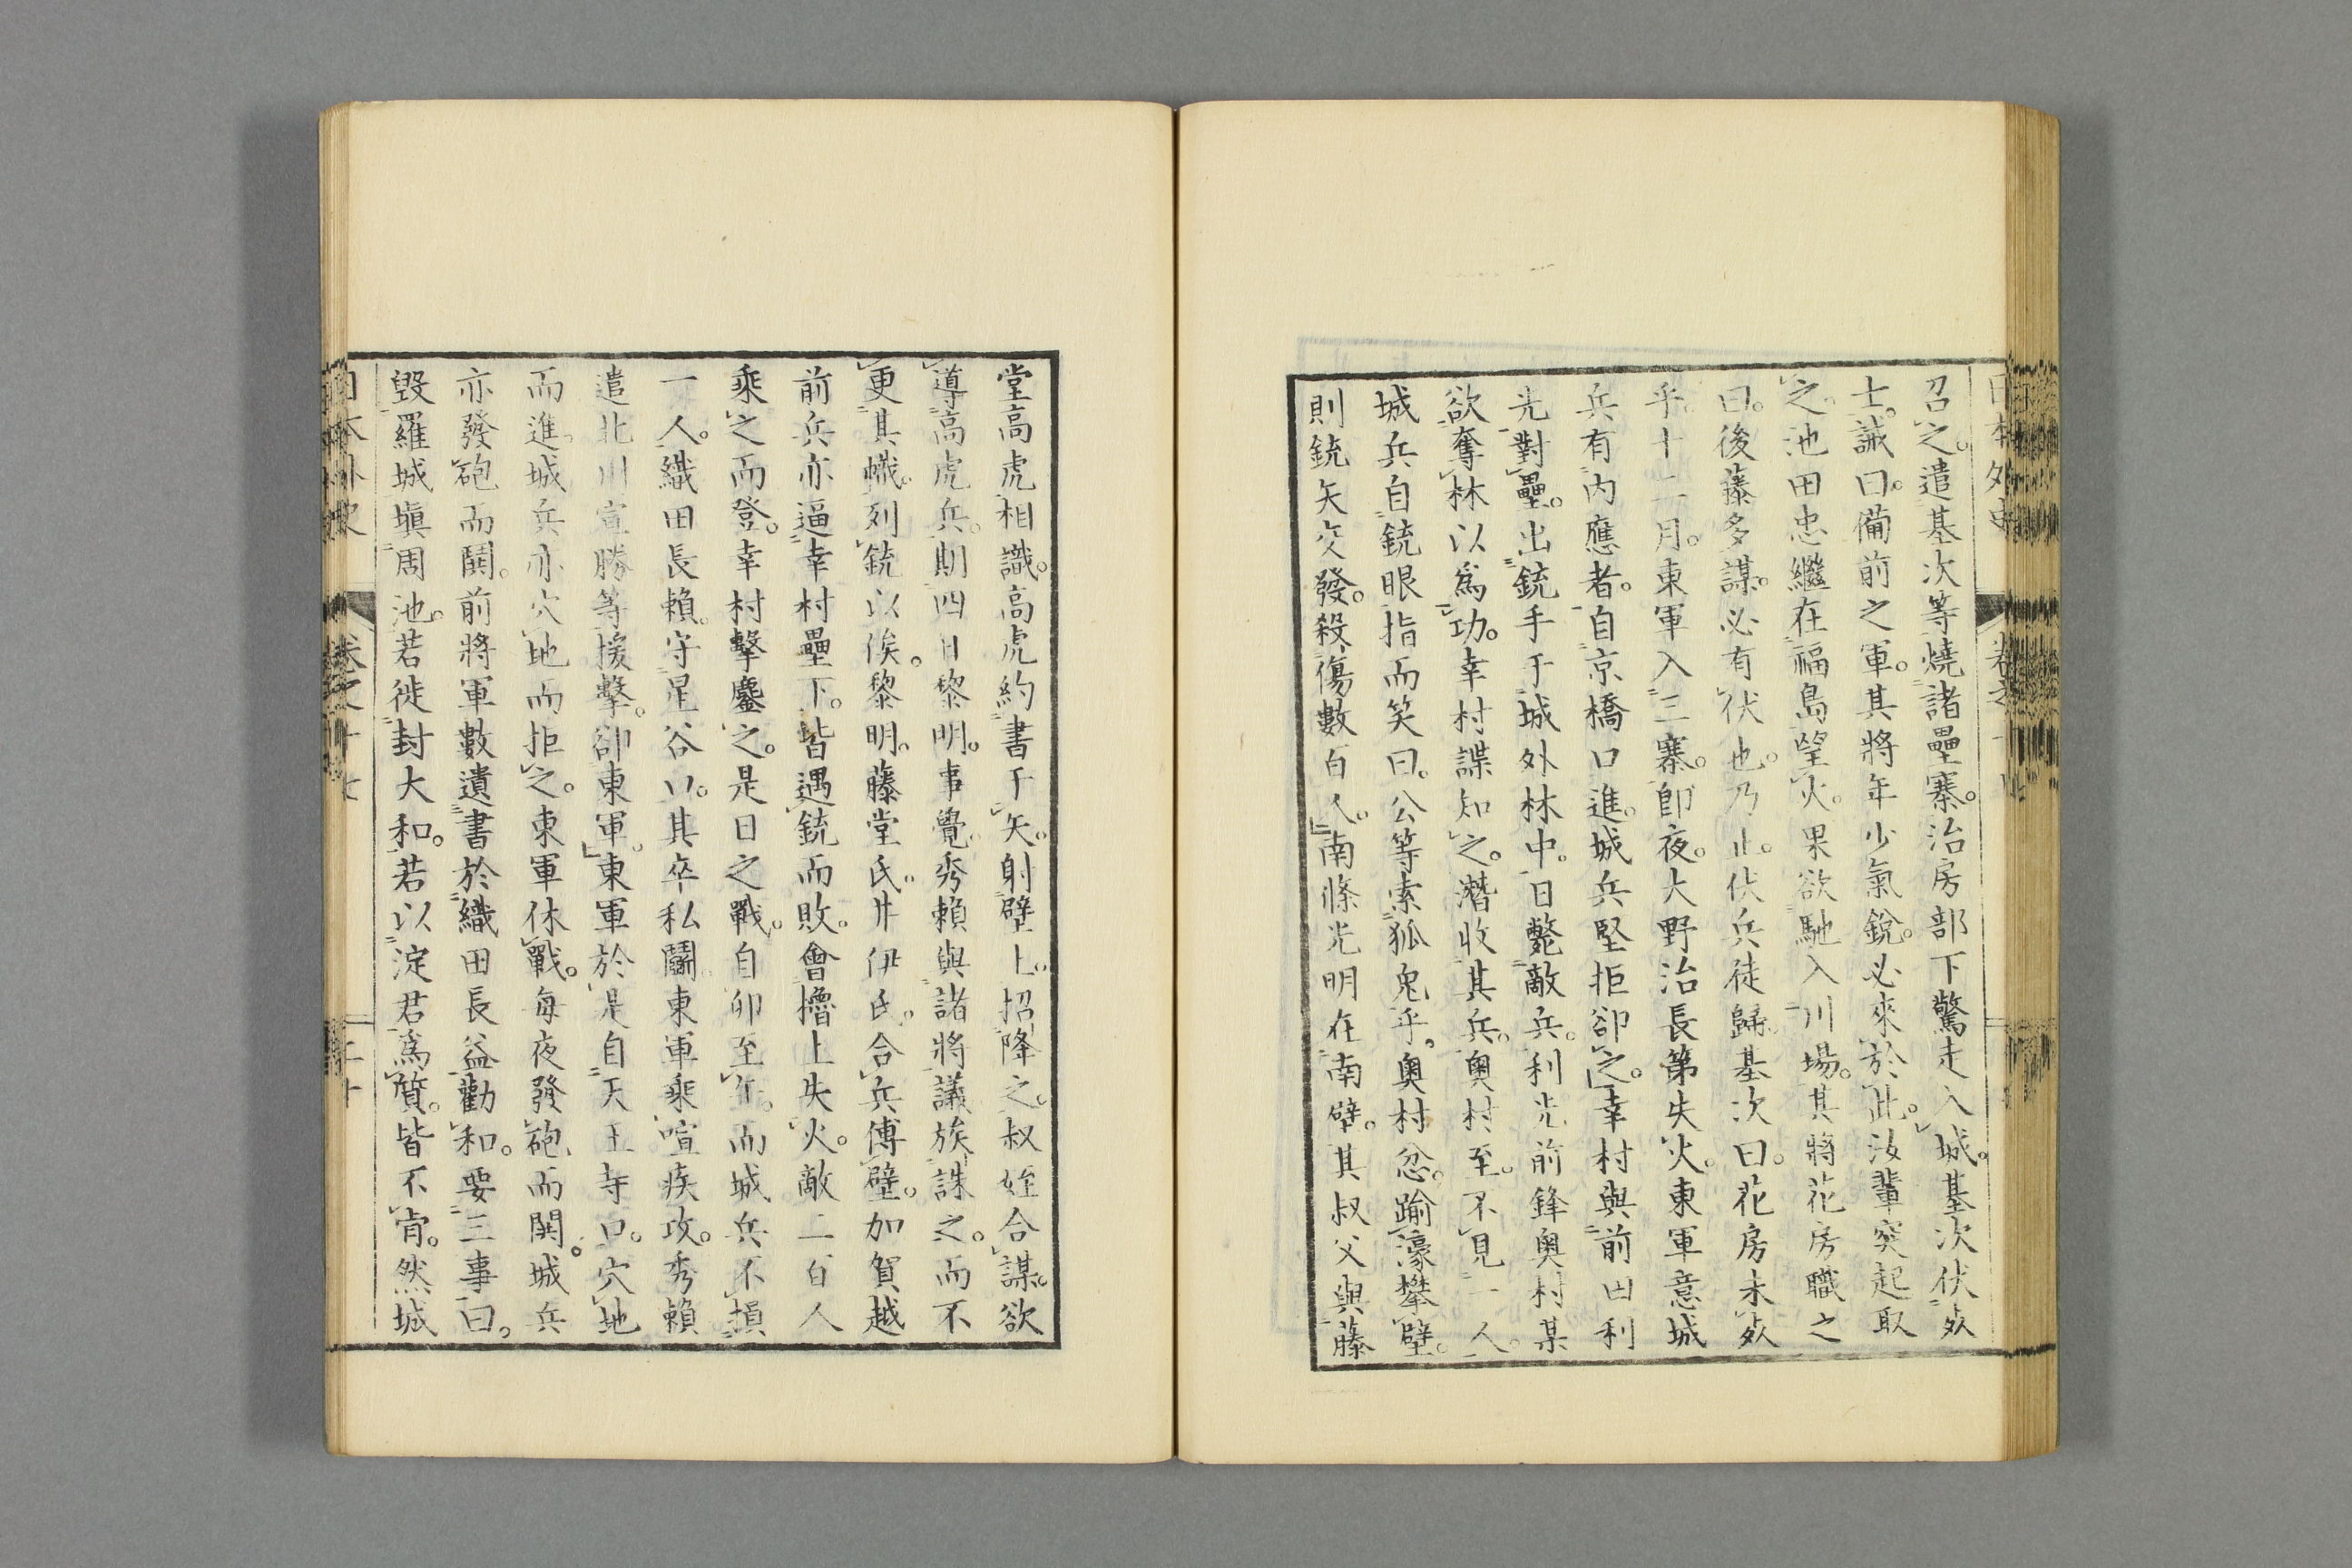 日本外史 卷之十七
召之。遣基次等燒諸壘寨。治房部下驚走入城。基次伏㱠
士。誡曰。備前之軍。其將年少氣銳。必來於此。汝輩突起取
之。池田忠繼在福島望火。果欲馳入川場。其將花房職之
曰。後藤多謀。必有伏也。乃止。伏兵徒歸。基次曰。花房未㱠
乎。十二月。東軍入三寨。卽夜。大野治長第失火。東軍意城
兵有内應者。自京橋口進。城兵堅拒卻之。」幸村與前田利
光對壘。出銃手于城外林中。日斃敵兵。利光前鋒奥村某
欲奪林以爲功。幸村諜知之。潛收其兵。奥村至。不見一人。
城兵自銃眼指而笑曰。公等索狐兔乎。奥村忿。踰濠攀壁。
則銃矢交發。殺傷數百人。」南條光明在南壁。其叔父與藤
堂高虎相識。高虎約書于矢。射壁上。招降之。叔姪合謀。欲
導高虎兵。期四日黎明。事覺。秀賴與諸將議族誅之。而不
更其幟。列銃以俟。黎明。藤堂氏。井伊氏。合兵傅壁。加賀越
前兵亦逼幸村壘下。皆遇銃而敗。會櫓上失火。敵二百人
乘之而登。幸村擊鏖之。是日之戰。自卯至午。而城兵不損
一人。織田長賴。守星谷口。其卒私鬭。東軍乘喧疾攻。秀賴
遣北川宣勝等援擊。卻東軍。」東軍於是自天王寺口。穴地
而進。城兵亦穴地而拒之。東軍休戰。每夜發砲而鬨。城兵
亦發砲而鬨。前將軍數遺書於織田長益勸和。要三事曰。
毀羅城塡周池。若徙封大和。若以淀君爲質。皆不肯。然城
日本外史 卷之十七 二十